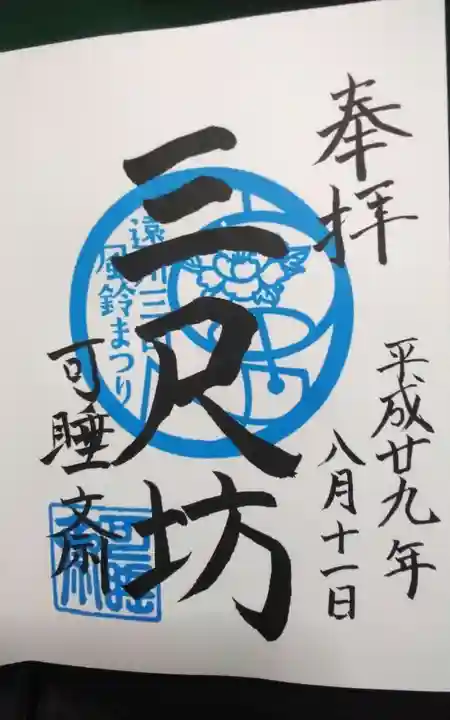 奉拝
平成廿九年
八月十一日
三尺坊
遠州三山
風鈴まつり
可睡斎
可睡斎